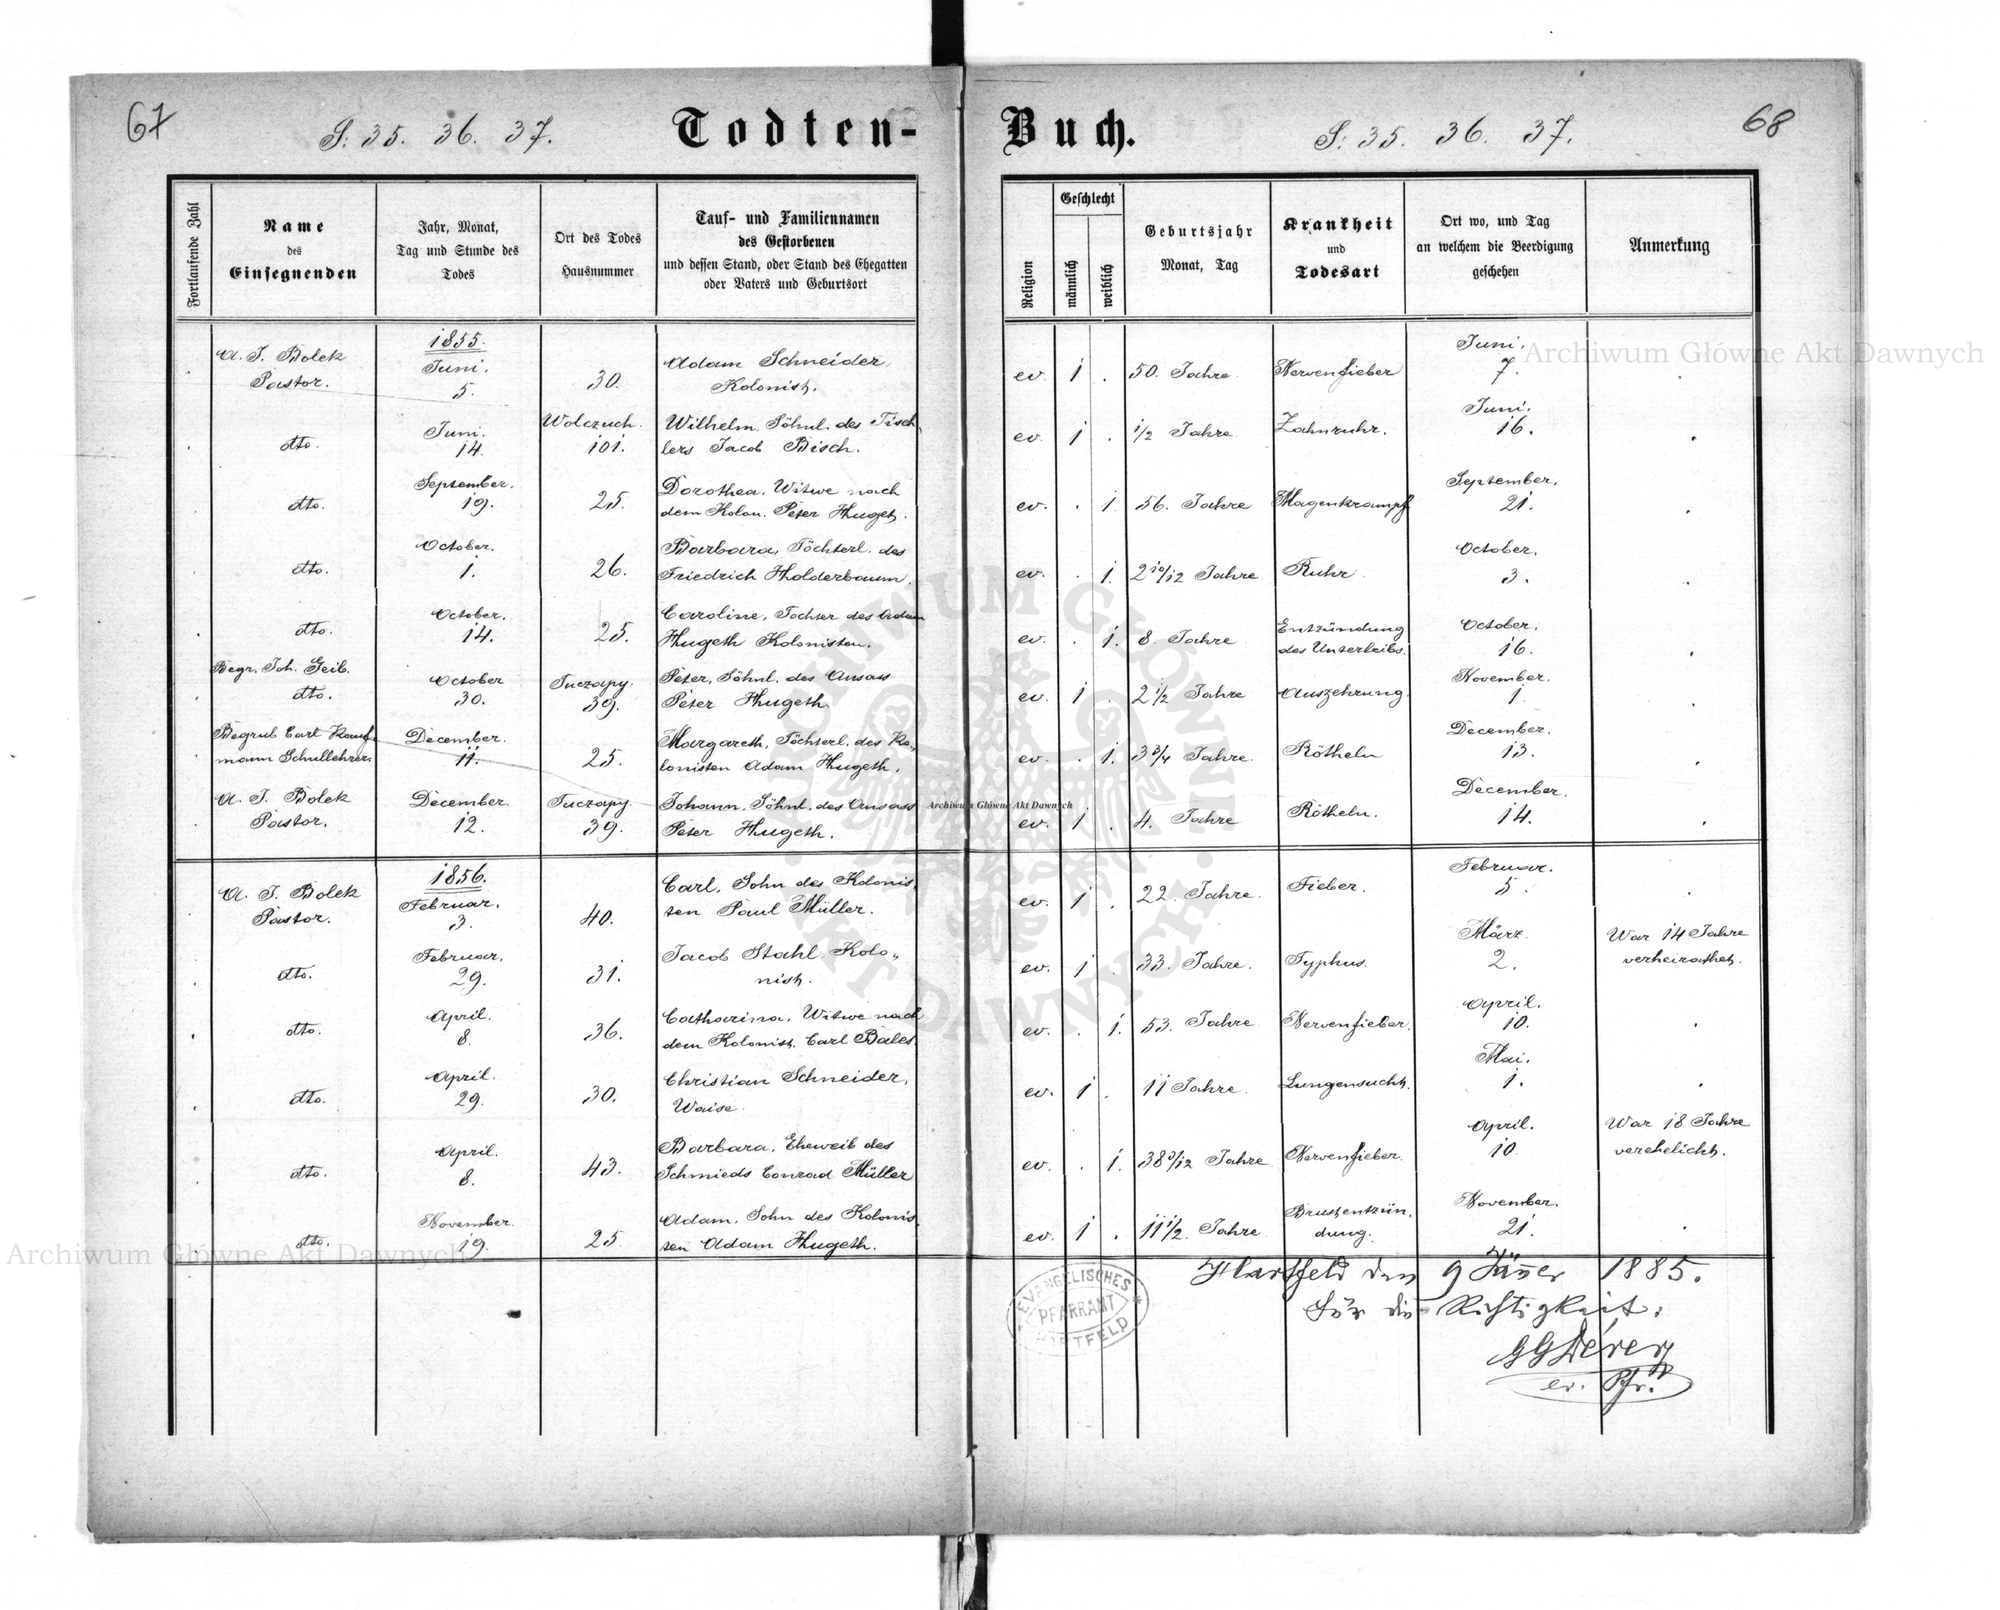 67
S: 35. 36. 37.
Todten-
Buch.
S: 35. 36. 37.
68
Fortlaufende Zahl
Name
des
Einsegnenden
Jahr, Monat,
Tag und Stunde des
Todes
Ort des Todes
Hausnummer
Tauf- und Familiennamen
des Gestorbenen
und dessen Stand, oder Stand des Ehegatten
oder Vaters und Geburtsort
Religion
Geschlecht
männlich
weiblich
Geburtsjahr
Monat, Tag
Krankheit
und
Todesart
Ort wo, und Tag
an welchem die Beerdigung
geschehen
Anmerkung
A. J. Bolek
Pastor.
1855.
Juni.
5.
30.
Adam Schneider,
Kolonist.
ev. 1 . 50. Jahre Nervenfieber
Juni.
7.
dto.
Juni.
14.
Wolczuch.
101.
Wilhelm, Söhnl. des Tisch,
lers Jacob Bisch.
ev. 1 . 1/2 Jahre Zahnruhr.
Juni.
16.
dto.
September.
19.
25.
Dorothea, Witwe nach
dem Kolon. Peter Huget.
ev. . 1. 56. Jahre Magenkrampf
September.
21.
dto.
October.
1.
26.
Barbara, Töchterl. des
Friedrich Holderbaum.
ev. . 1. 2 10/12 Jahre Ruhr.
October.
3.
dto.
October.
14.
25.
Caroline, Tochter des Adam
Hugeth Kolonisten.
ev. . 1. 8. Jahre
Entzündung
des Unterleibs.
October.
16.
Begr. Joh. Geib.
dto.
October
30.
Tuczapy.
39.
Peter, Söhnl. des Ansass
Peter Hugeth.
ev. 1 . 2 1/2 Jahre Auszehrung.
November.
1.
Begrub Carl Kauf,
mann Schullehrer.
December.
11.
25.
Margareth, Töchterl. des Ko,
lonisten Adam Hugeth.
ev. . 1. 3 3/4 Jahre. Rötheln
December.
13.
A. J. Bolek
Pastor.
December.
12.
Tuczapy.
39.
Johann, Söhnl. des Ansass
Peter Hugeth.
ev. 1 . 4. Jahre Rötheln.
December.
14.
A. J. Bolek
Pastor.
1856.
Februar.
3.
40.
Carl, Sohn des Kolonis,
ten Paul Müller.
ev. 1 . 22. Jahre. Fieber.
Februar.
5.
dto.
Februar.
29.
31.
Jacob Stahl Kolo,,
nist.
ev. 1 . 33. Jahre. Typhus.
März.
2.
War 14 Jahre
verheirathet.
dto.
April.
8.
36.
Catharina, Witwe nach
dem Kolonist. Carl Bales.
ev. . 1. 53. Jahre Nervenfieber.
April.
10.
dto.
April.
29.
30.
Christian Schneider,
Waise.
ev. 1 . 11 Jahre. Lungensucht.
Mai.
1.
dto.
April.
8.
43.
Barbara, Eheweib des
Schmieds Conrad Müller
ev. . 1. Jahre Nervenfieber.
April.
10.
War 18 Jahre
verehelicht.
dto.
November.
19.
25.
Adam, Sohn des Kolonis,
ten Adam Hugeth.
ev. 1 . 11 1/2. Jahre
Brustentzün,
dung.
November.
21.
Hartfeld den 9 Jänner 1885.
Für die Richtigkeit:
ev. Pfr.
EVANGELISCHES
PFARRAMT
HARTFELD
Archiwum Główne Akt Dawnych
Archiwum Główne Akt Dawnych
Archiwum Główne Akt Dawnych
ARCHIWUM GŁÓWNE AKT DAWNYCH